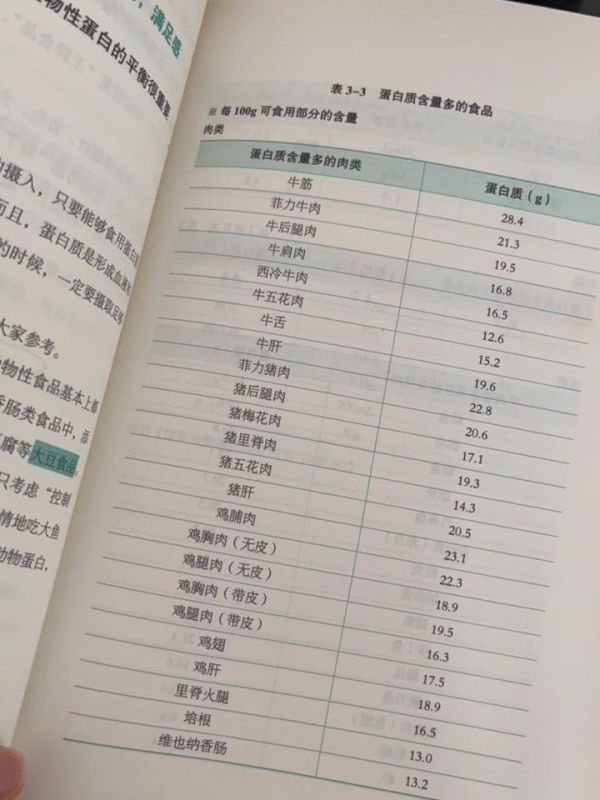 ，满足感
物性蛋白的平衡很重要
摄入，只要能够食用蛋白
而且，蛋白质是形成血液和
的时候，一定要摄取足够
大家参考。
物性食品基本上都
香肠类食品中，添
腐等大豆食品，
只考虑“控制
情地吃大鱼
动物蛋白，
表 3-3 蛋白质含量多的食品
※ 每 100g 可食用部分的含量
肉类
蛋白质含量多的肉类 蛋白质（g）
牛筋 28.4
菲力牛肉 21.3
牛后腿肉 19.5
牛肩肉 16.8
西冷牛肉 16.5
牛五花肉 12.6
牛舌 15.2
牛肝 19.6
菲力猪肉 22.8
猪后腿肉 20.6
猪梅花肉 17.1
猪里脊肉 19.3
猪五花肉 14.3
猪肝 20.5
鸡脯肉 23.1
鸡胸肉（无皮） 22.3
鸡腿肉（无皮） 18.9
鸡胸肉（带皮） 19.5
鸡腿肉（带皮） 16.3
鸡翅 17.5
鸡肝 18.9
里脊火腿 16.5
培根 13.0
维也纳香肠 13.2